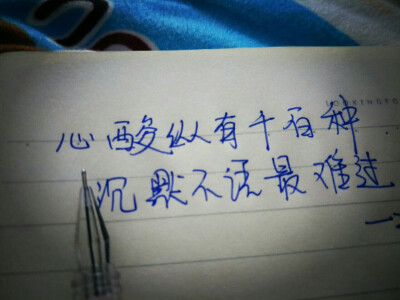 心酸纵有千百种
沉默不语最难过